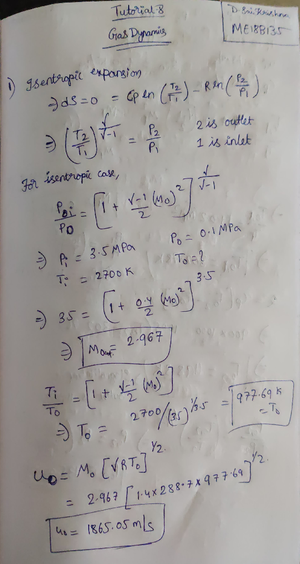 Tutorial 8
Gas Dynamics
D. Sai Krishna
ME18B135
1) Isentropic expansion
⇒ ds = 0 = Cp ln (T2/T1) - R ln (P2/P1)
⇒ (T2/T1)^(γ/(γ-1)) = P2/P1
2 is outlet
1 is inlet
For isentropic case,
P0i/P0 = [1 + (γ-1)/2 (M0)^2]^(γ/(γ-1))
⇒ Pi = 3.5 MPa P0 = 0.1 MPa
Ti = 2700 K T0 = ?
⇒ 35 = [1 + 0.4/2 (M0)^2]^3.5
⇒ Mout = 2.967
Ti/T0 = [1 + (γ-1)/2 (M0)^2]
⇒ T0 = 2700/(35)^(1/3.5) = 977.69 K = T0
u0 = M0 [γRT0]^(1/2)
= 2.967 [1.4 x 288.7 x 977.69]^(1/2)
u0 = 1865.05 m/s